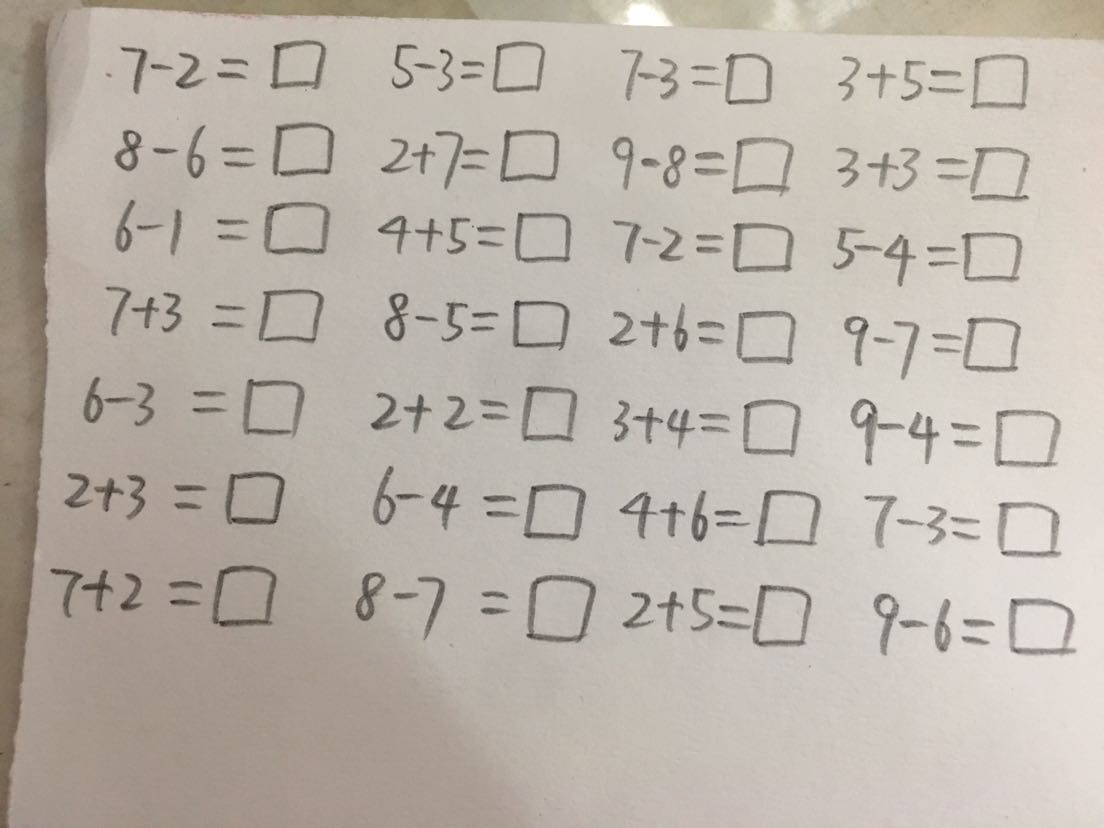 7-2=□ 5-3=□ 7-3=□ 3+5=□
8-6=□ 2+7=□ 9-8=□ 3+3=□
6-1=□ 4+5=□ 7-2=□ 5-4=□
7+3=□ 8-5=□ 2+6=□ 9-7=□
6-3=□ 2+2=□ 3+4=□ 9-4=□
2+3=□ 6-4=□ 4+6=□ 7-3=□
7+2=□ 8-7=□ 2+5=□ 9-6=□